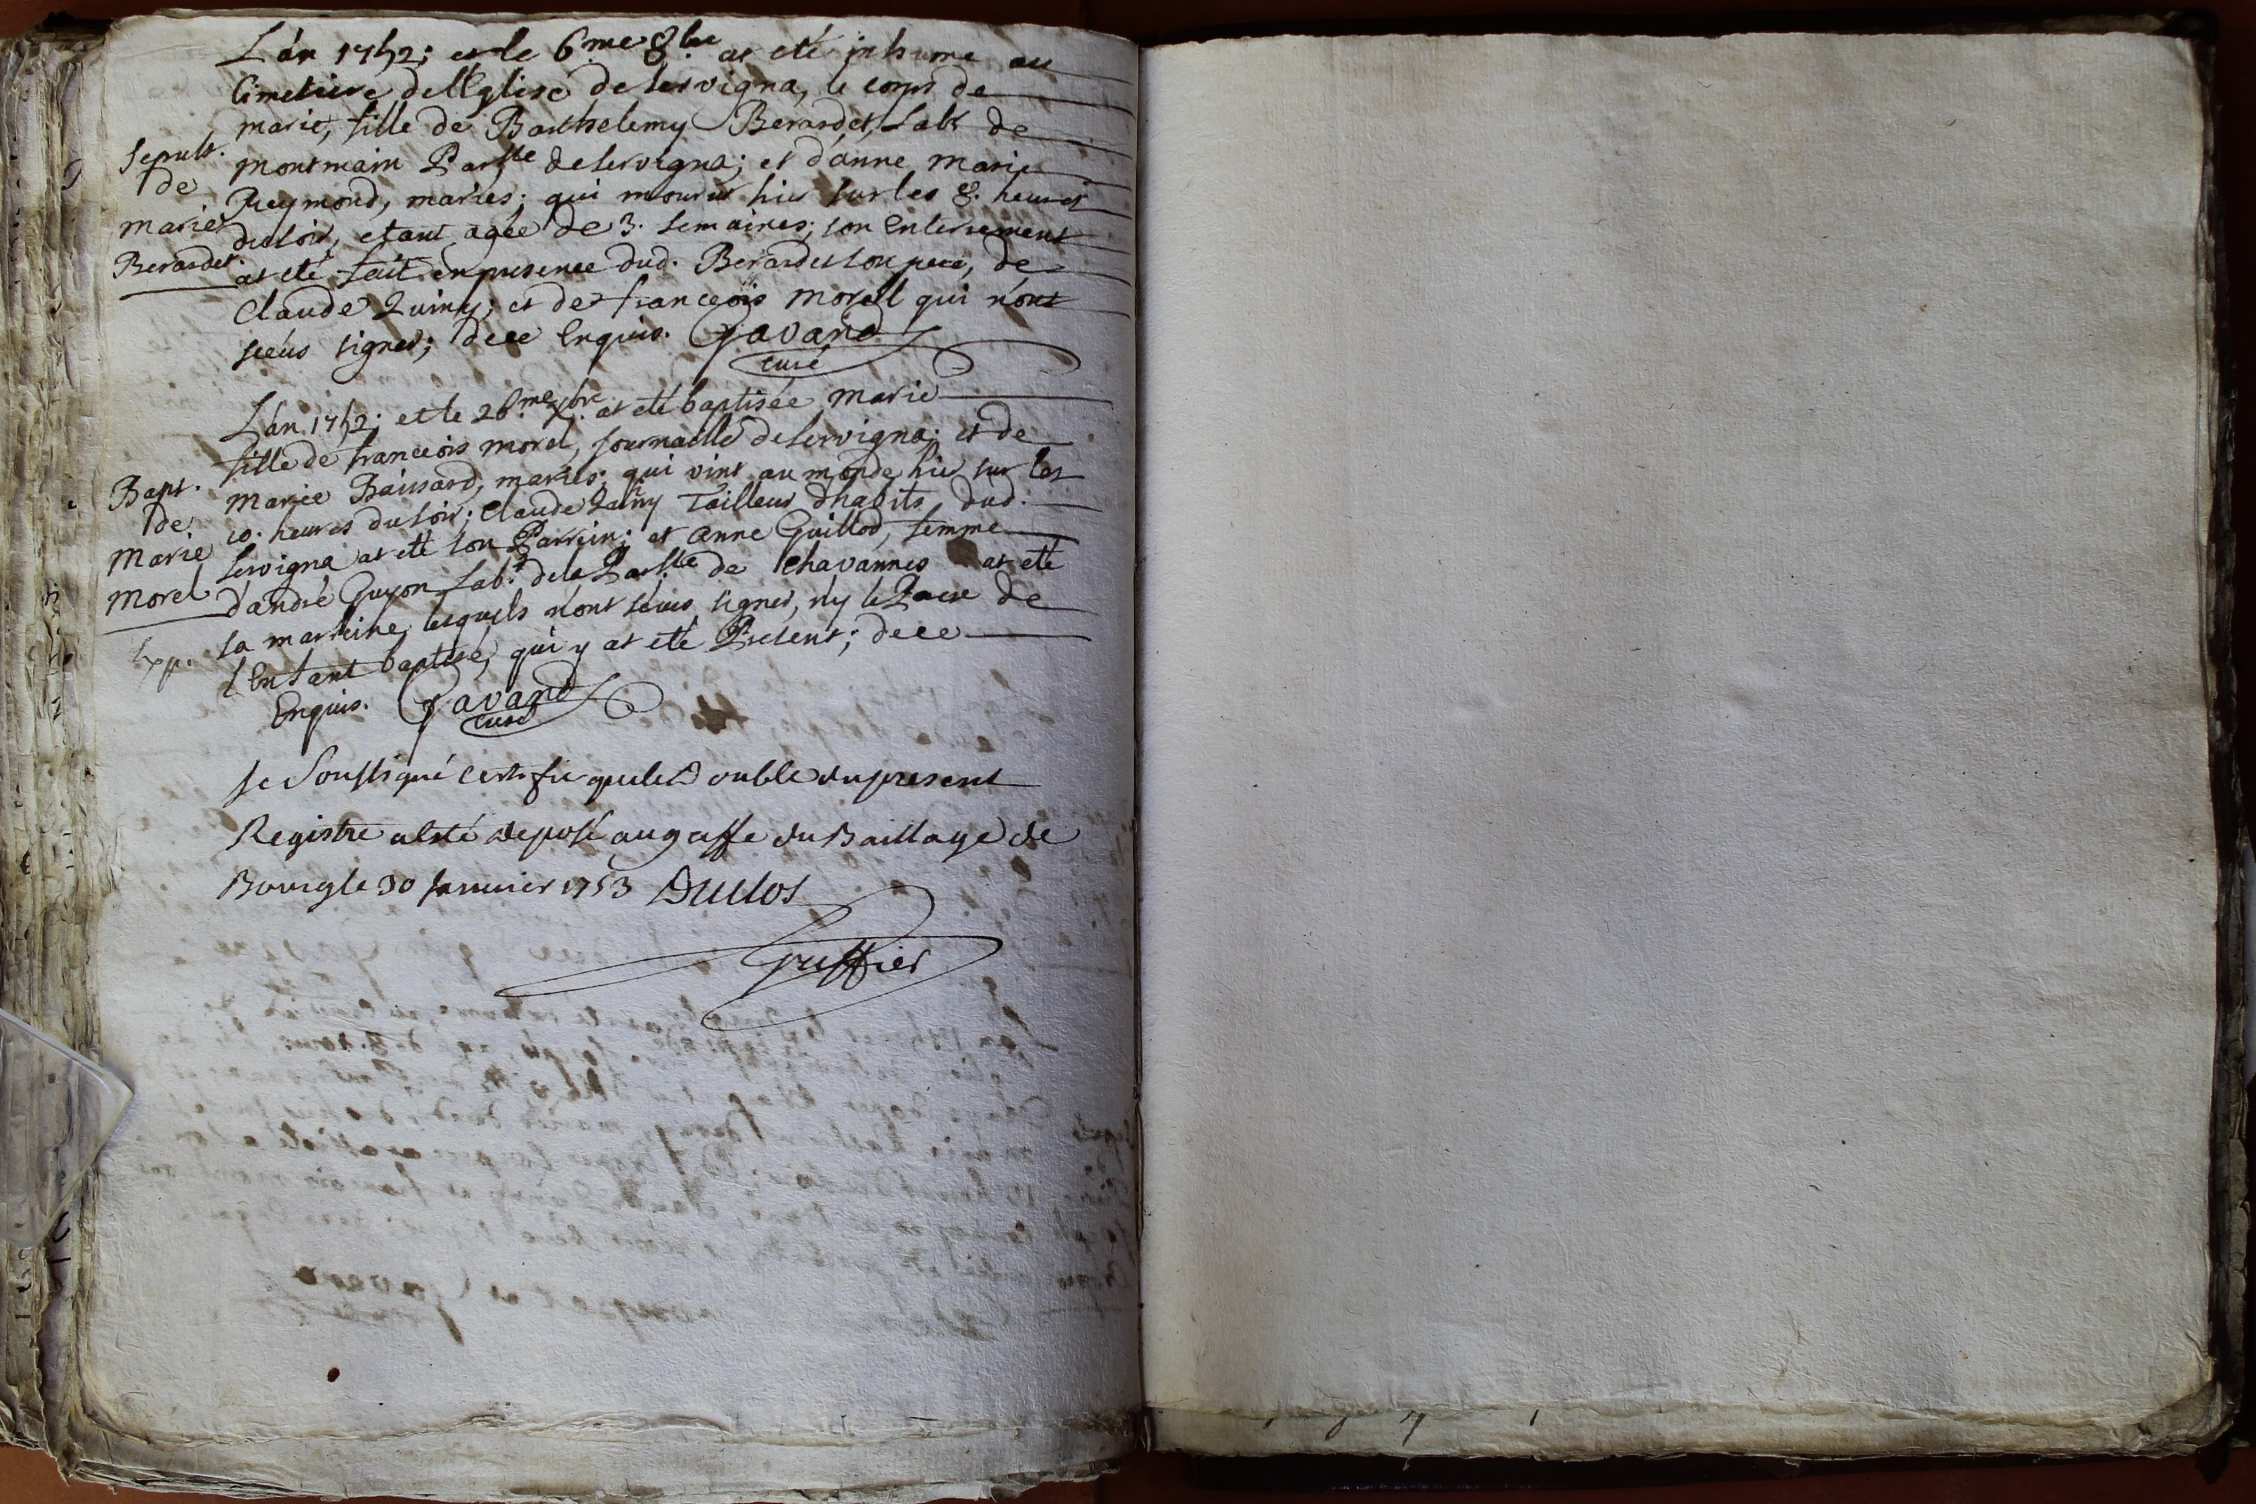 L'an 1752; et le 6.me 8.bre at eté inhumé au
Cimetiere de l'Eglise de Servigna, le corps de
marie, fille de Barthelemy Berardet, Lab.r de
montmain Par.sse de Servigna; et d'anne marie
Reymond, mariés; qui mourut hier sur les 8. heures
du soir, etant agée de 3. semaines; son Enterrement
at eté fait en presence dud. Berardet son pere, de
Claude Quiny; et de franceois morel qui n'ont
sceus signer; de ce Enquis. Gavand
curé
Sepult.
de
marie
Berardet.
L'an 1752; et le 26.me X.bre at eté baptisée marie
fille de franceois morel, Journallé de Servigna; et de
mariee Baissard, mariés; qui vint au monde hier sur les
10. heures du soir; Claude Quiny Tailleur d'habits dud.
Servigna at eté son Parrein; et anne Guillod, femme
d'andré Guyon Lab.r de la Par.sse de Chavannes at eté
sa marreine, lesquels n'ont sceus signer, n'y le Pere de
l'Enfant baptisé, qui y at eté Present; de ce
Enquis. Gavand
curé
Bapt.
de
Marie
morel
Exp.
Je Soussigné certifie que le Double du present
Registre a Eté deposé au greffe du Baillage de
Bourg le 30 Janvier 1753 Duclos
Greffier